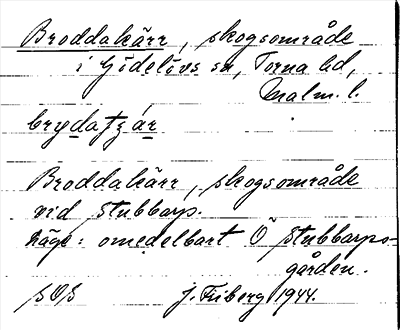 Broddakärr, skogsområde
i Gödelövs sn, Torna hd,
Malm. l.
Broddakärr, skogsområde
vid Stubbarp.
Läge: omedelbart Ö Stubbarps-
gården.
SOS J. Friberg 1944.